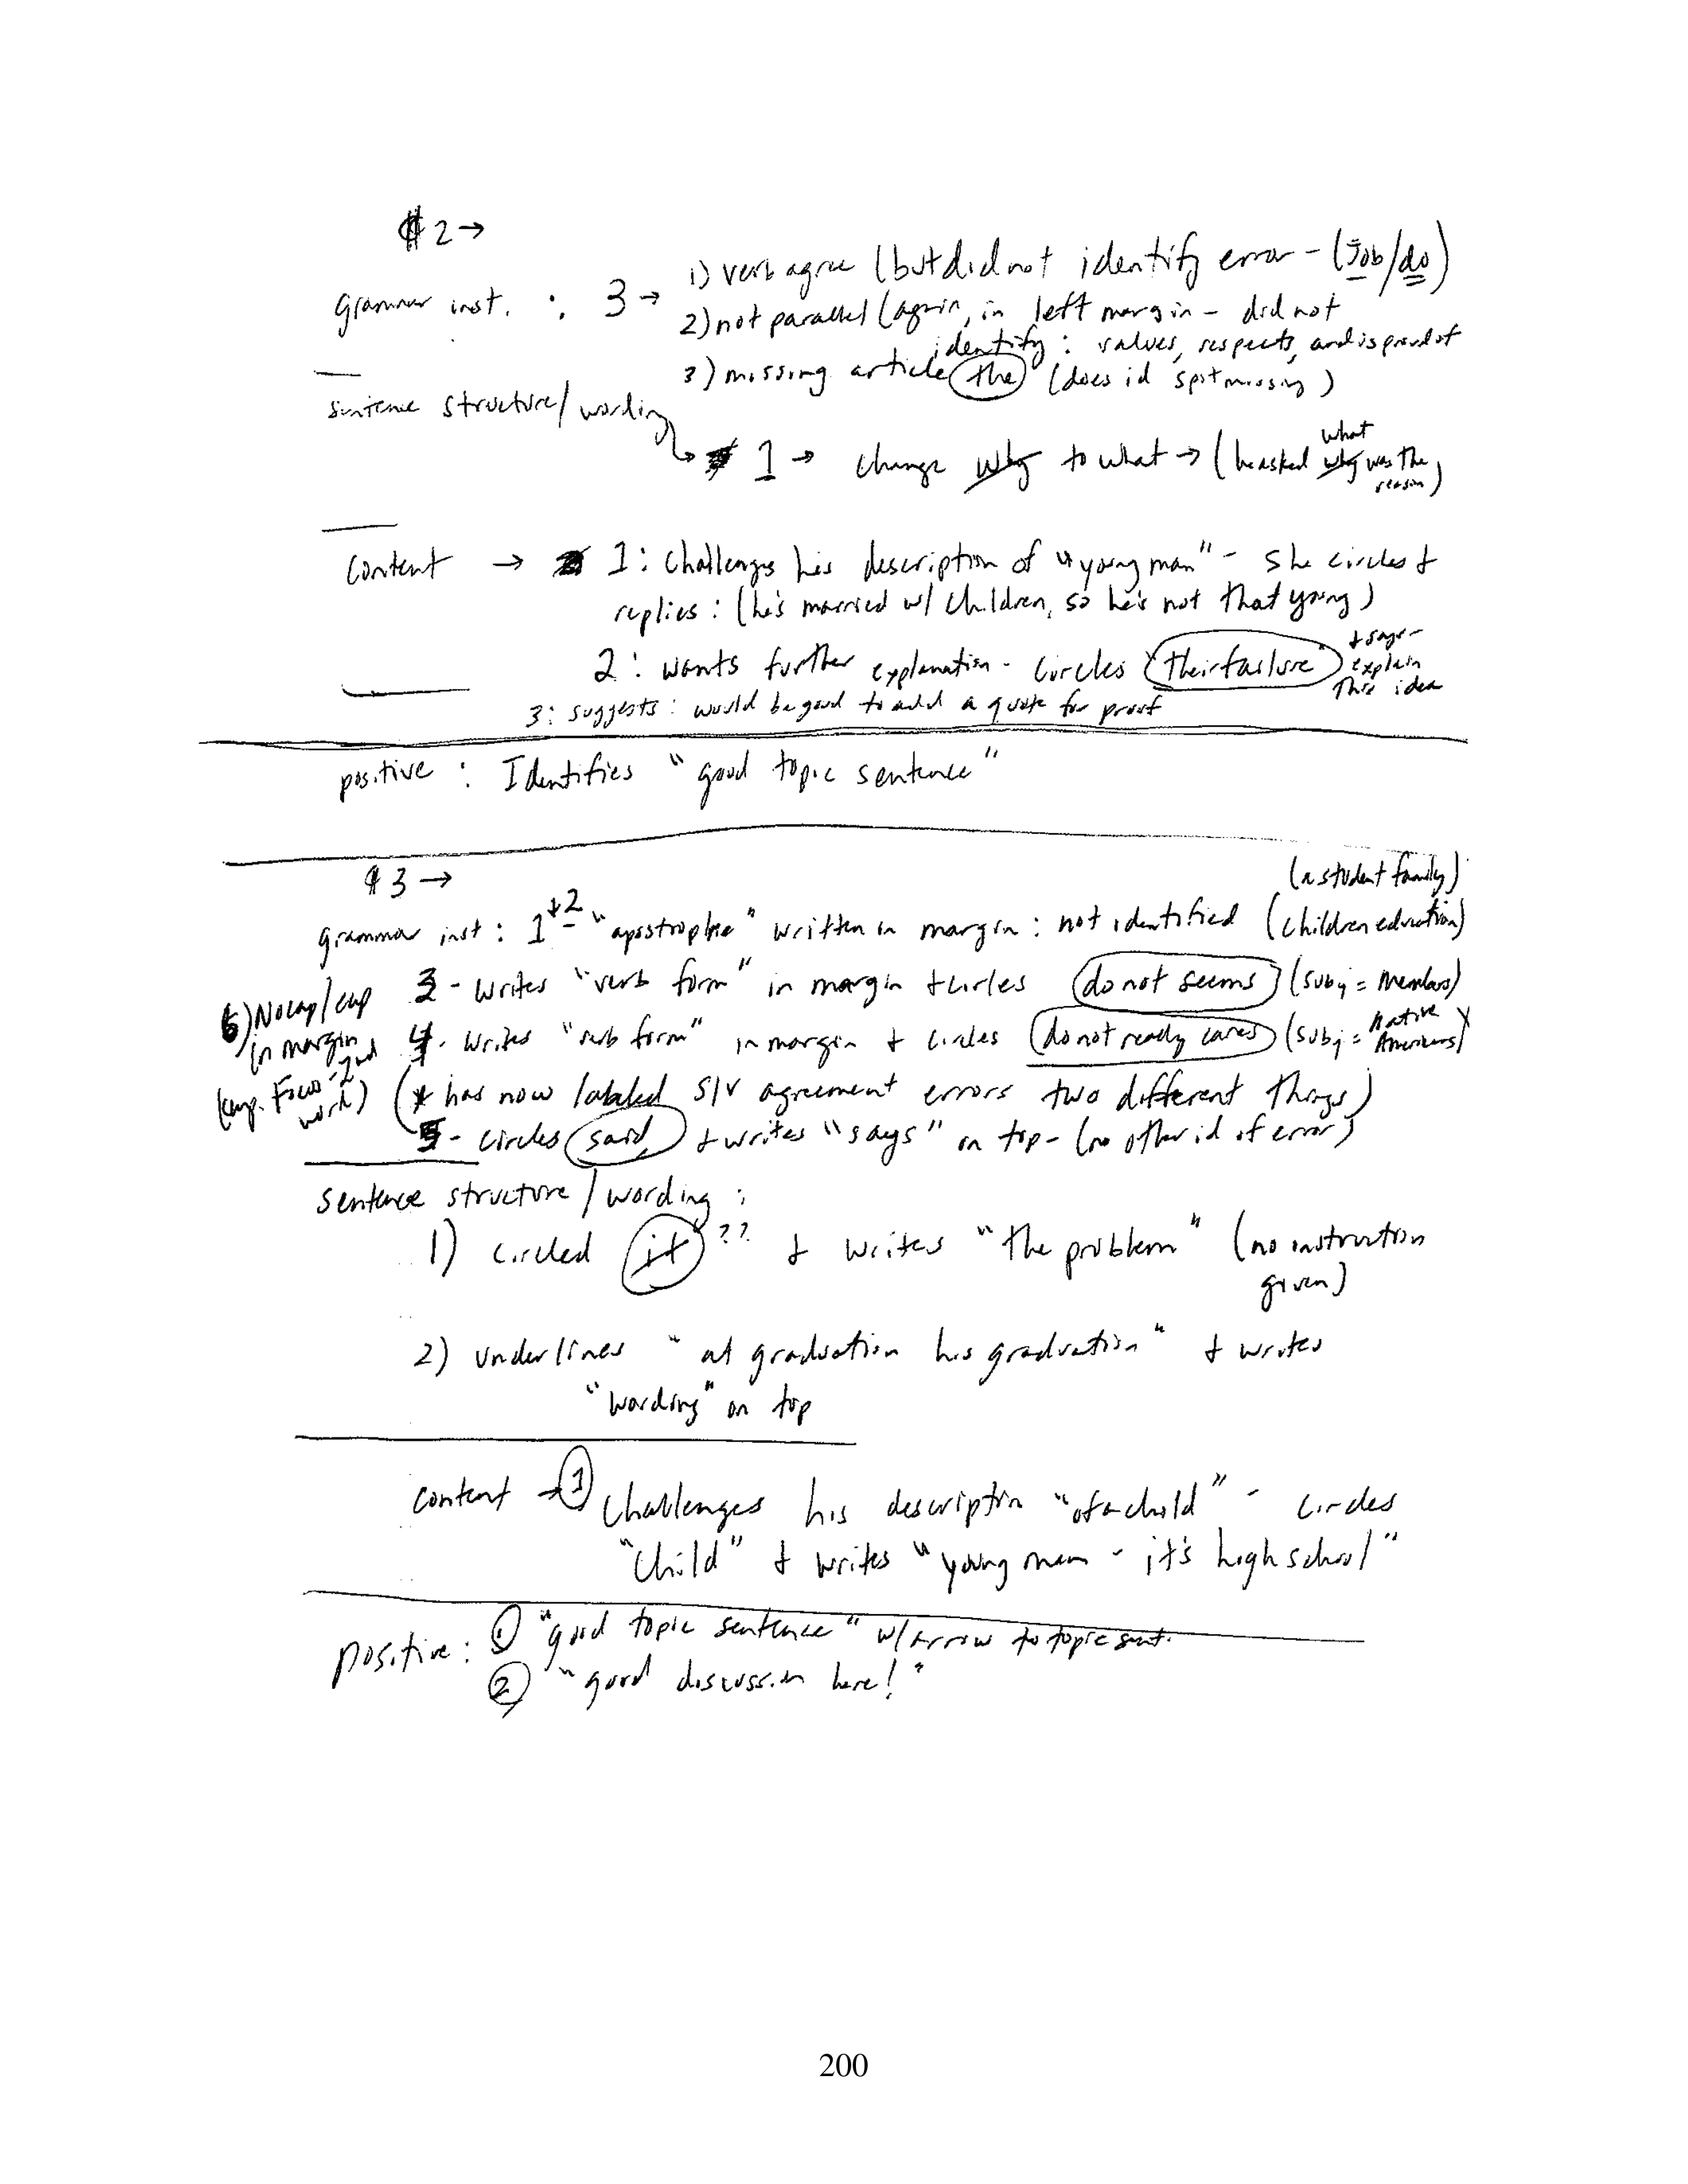 ¶ 2 →
grammar inst. : 3 → 1) verb agree (but did not identify error - (Job/do)
2) not parallel (again, in left margin - did not
identify: values, respects, and is proud of
3) missing article the (does id spot missing)
sentence structure/wording
1 → change why to what → (he asked why what was the reason)
Content → 1: Challenges his description of "young man" - she circles +
replies: (he's married w/ children, so he's not that young)
2: wants further explanation - circles "their failure" + says - explain this idea
3: suggests: would be good to add a quote for proof
positive : Identifies "good topic sentence"
¶ 3 →
(a student family)
grammar inst: 1 + 2 - "apostrophe" written in margin: not identified (children education)
3 - writes "verb form" in margin + circles do not seems (subj = members)
4 - writes "verb form" in margin + circles (do not really cares) (subj = Native Americans)
(* has now labeled S/V agreement errors two different things)
5 - circles said + writes "says" on top - (no other id of error)
6) No cap/cap
in margin
2nd
work)
sentence structure/wording :
1) circled it ?? + writes "the problem" (no instruction
given)
2) underlines "at graduation his graduation" + writes
"wording" on top
content → 1 Challenges his description "of a child" - circles
"child" + writes "young man - it's high school"
positive: 1 "good topic sentence" w/ arrow to topic sent.
2 "good discussion here!"
200